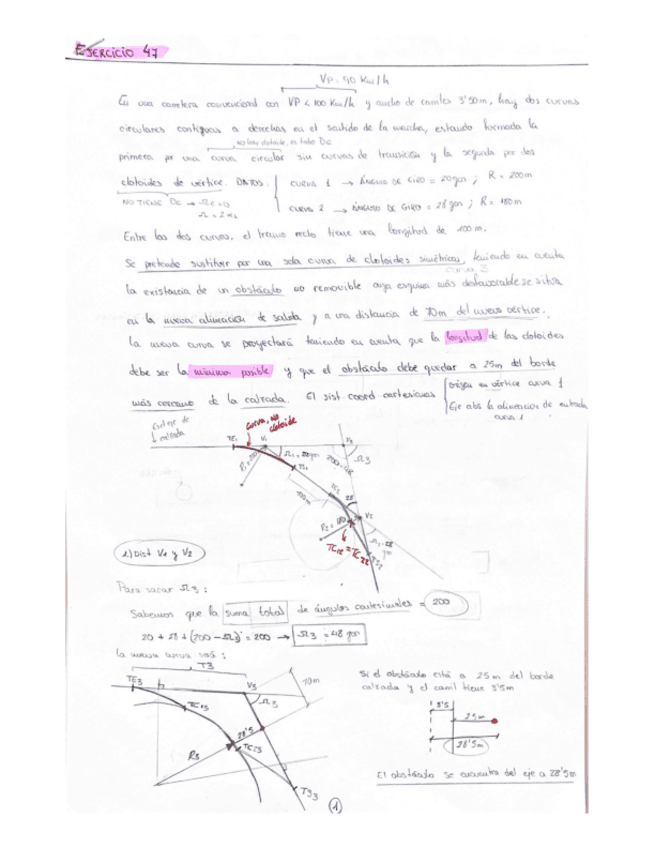 EJERCICIO 47
VP: 90 Km/h
En una carretera convencional con VP < 100 Km/h y ancho de carriles 3'50m, hay dos curvas
circulares contiguas a derechas en el sentido de la marcha, estando formada la
no hay clotoide, es todo Dc
primera por una curva circular sin curvas de transición y la segunda por dos
clotoides de vértice. DATOS: CURVA 1 → ÁNGULO DE GIRO = 20gon ; R = 200m
NO TIENE Dc → Ωc=0
CURVA 2 → ÁNGULO DE GIRO = 28gon ; R = 180m
Entre las dos curvas, el tramo recto tiene una longitud de 100 m.
Se pretende sustituir por una sola curva de clotoides simétrica, teniendo en cuenta
curva 3
la existencia de un obstáculo no removible cuya esquina más desfavorable se sitúa
en la nueva alineación de salida y a una distancia de 70m del nuevo vértice.
La nueva curva se proyectará teniendo en cuenta que la longitud de las clotoides
debe ser la mínima posible y que el obstáculo debe quedar a 25m del borde
más cercano de la calzada. El sist coord cartesianas
origen en vértice curva 1
Eje abs la alineación de entrada
curva 1
curva, no
clotoide
TE1
V1
V3
Ω1 = 20gon
200-48
Ω3
R1=200
TS1
100m
TE2
28
V2
R2 = 180
Ω2 = 28
gon
TC12 = TC22
TS2
1) Dist V1 y V2
Para sacar Ω3 :
Sabemos que la suma total de ángulos = 200
20 + 28 + (200 - Ω3) = 200 → Ω3 = 48 gon
la nueva curva será :
T3
TE3
V3
70m
Ω3
TC13
28'5
TC23
R3
TS3
Si el obstáculo está a 25m del borde
calzada y el carril tiene 3'5m
3'5
25m
28'5m
El obstáculo se encuentra del eje a 28'5m
1